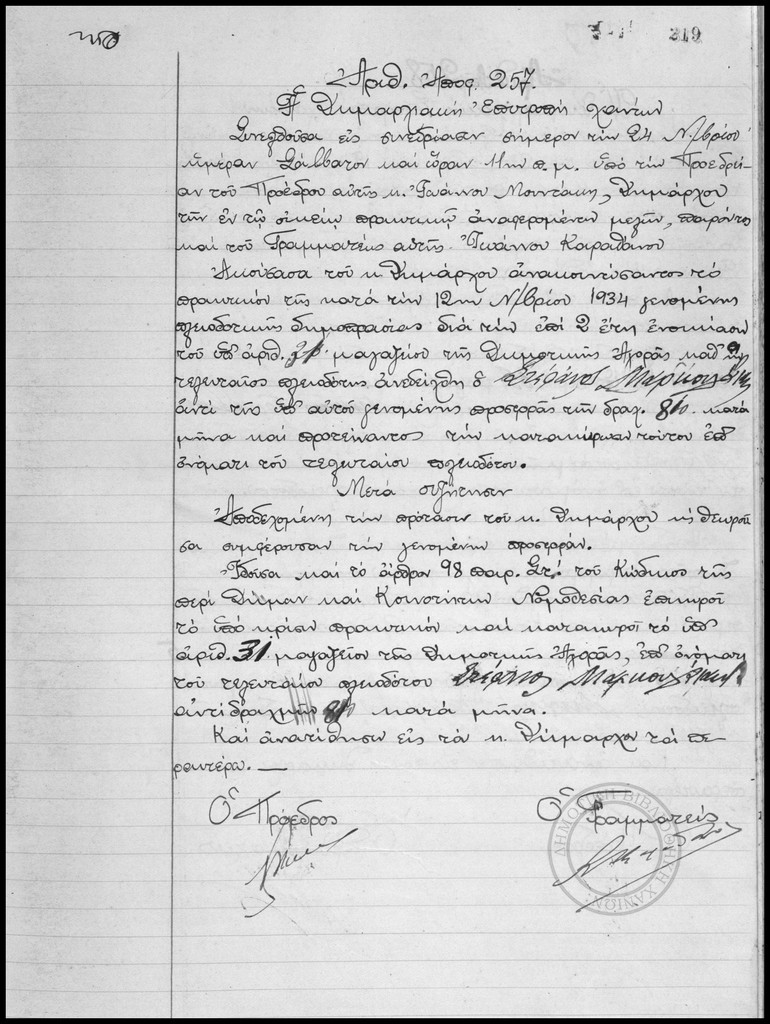 219
Ἀριθ. Ἀποφ. 257.
Ἡ Δημαρχιακή Ἐπιτροπή Χανίων
Συνελθοῦσα εἰς συνεδρίασιν σήμερον τήν 24 Ν/βρίου
ἡμέραν Σάββατον καί ὥραν 11ην π.μ. ὑπό τήν Προεδρεί-
αν τοῦ Προέδρου αὐτῆς κ. Ἰωάννου Μουντάκη, Δημάρχου
τῶν ἐν τῷ οἰκείῳ πρακτικῷ ἀναφερομένων μελῶν, παρόντος
καί τοῦ Γραμματέως αὐτῆς Ἰωάννου Καραθάνου
Ἀκούσασα τοῦ κ. Δημάρχου ἀνακοινώσαντος τό
πρακτικόν τῆς κατά τήν 12ην Ν/βρίου 1934 γενομένης
πλειοδοτικῆς δημοπρασίας διά τήν ἐπί 2 ἔτη ἐνοικίασιν
τοῦ ὑπ' ἀριθ. 31 μαγαζείου τῆς Δημοτικῆς Ἀγορᾶς καθ' ἥν
τελευταῖος πλειοδότης ἀνεδείχθη ὁ Στέφανος
ἀντί τῆς ὑπ' αὐτοῦ γενομένης προσφορᾶς τῶν δραχ. 810 κατά
μῆνα καί προτείναντος τήν κατακύρωσιν τούτου ἐπ'
ὀνόματι τοῦ τελευταίου πλειοδότου.
Μετά συζήτησιν
Ἀποδεχομένη τήν πρότασιν τοῦ κ. Δημάρχου κ θεωροῦ
σα συμφέρουσαν τήν γενομένην προσφοράν.
Ἰδοῦσα καί τό ἄρθρον 98 παρ. Στ! τοῦ Κώδικος τῆς
περί Δήμων καί Κοινοτήτων Νομοθεσίας ἐπικυροῖ
τό ὑπό κρίσιν πρακτικόν καί κατακυροῖ τό ὑπ'
ἀριθ. 31 μαγαζεῖον τῆς Δημοτικῆς Ἀγορᾶς, ἐπ' ὀνόματι
τοῦ τελευταίου πλειοδότου Στέφανος
ἀντί δραχμῶν 810 κατά μῆνα.
Καί ἀνατίθησιν εἰς τόν κ. Δήμαρχον τά πε-
ραιτέρω. —
Ὁ Πρόεδρος
Ὁ Γραμματεύς
ΔΗΜΟΤΙΚΗ ΒΙΒΛΙΟΘΗΚΗ ΧΑΝΙΩΝ